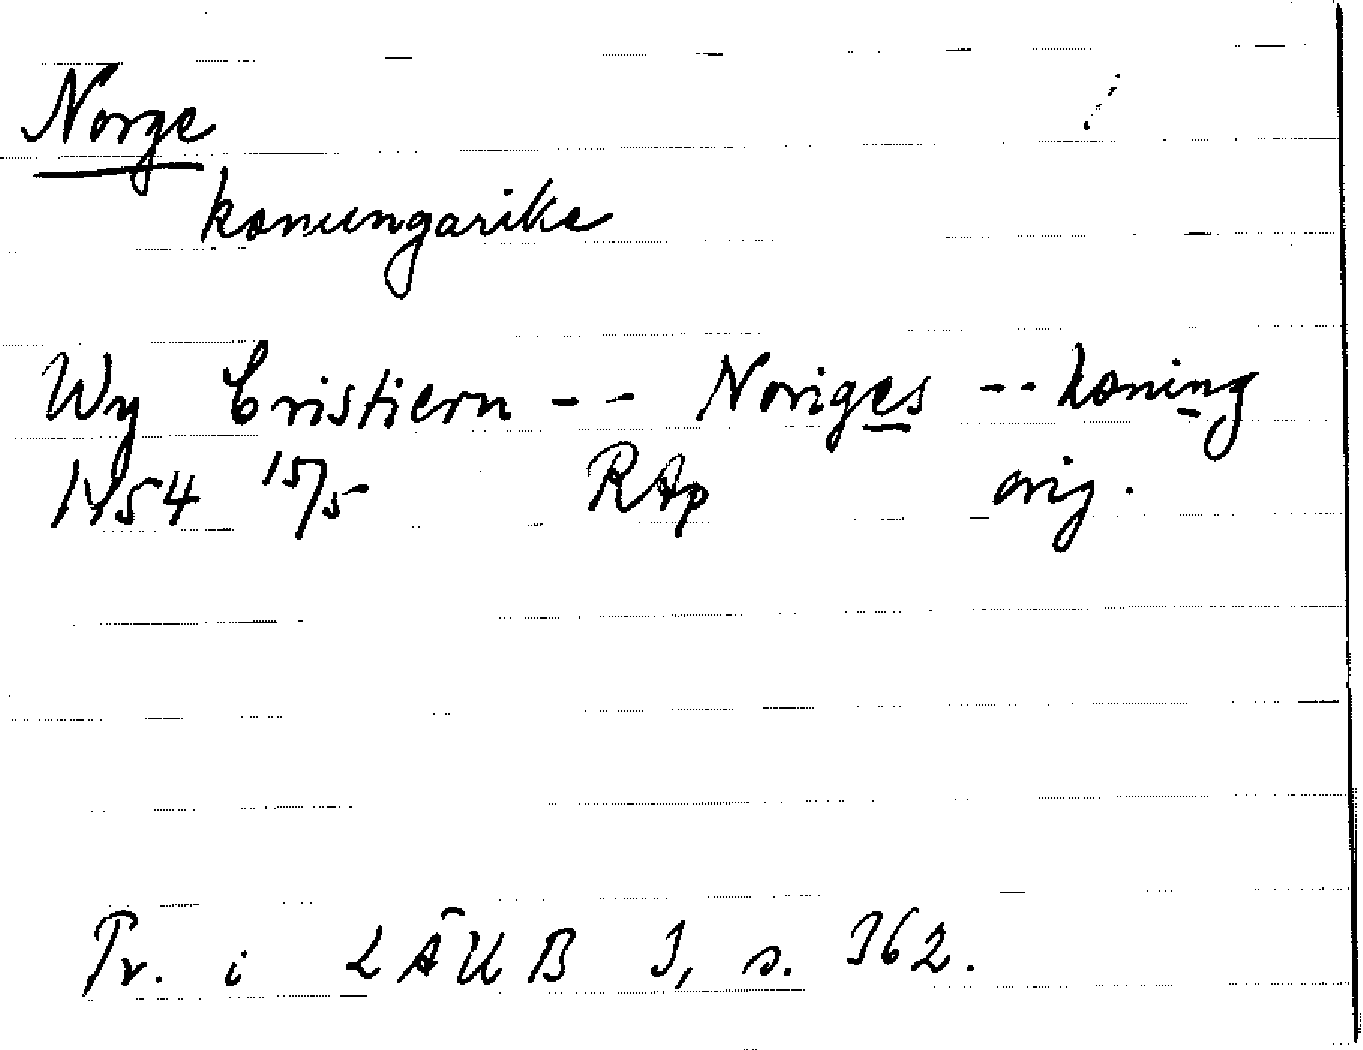 Norge
konungarike
Wy Cristiern - - Noriges - - koning
1454 15/5 RAp orig.
Tr. i LÄUB 3, s. 362.